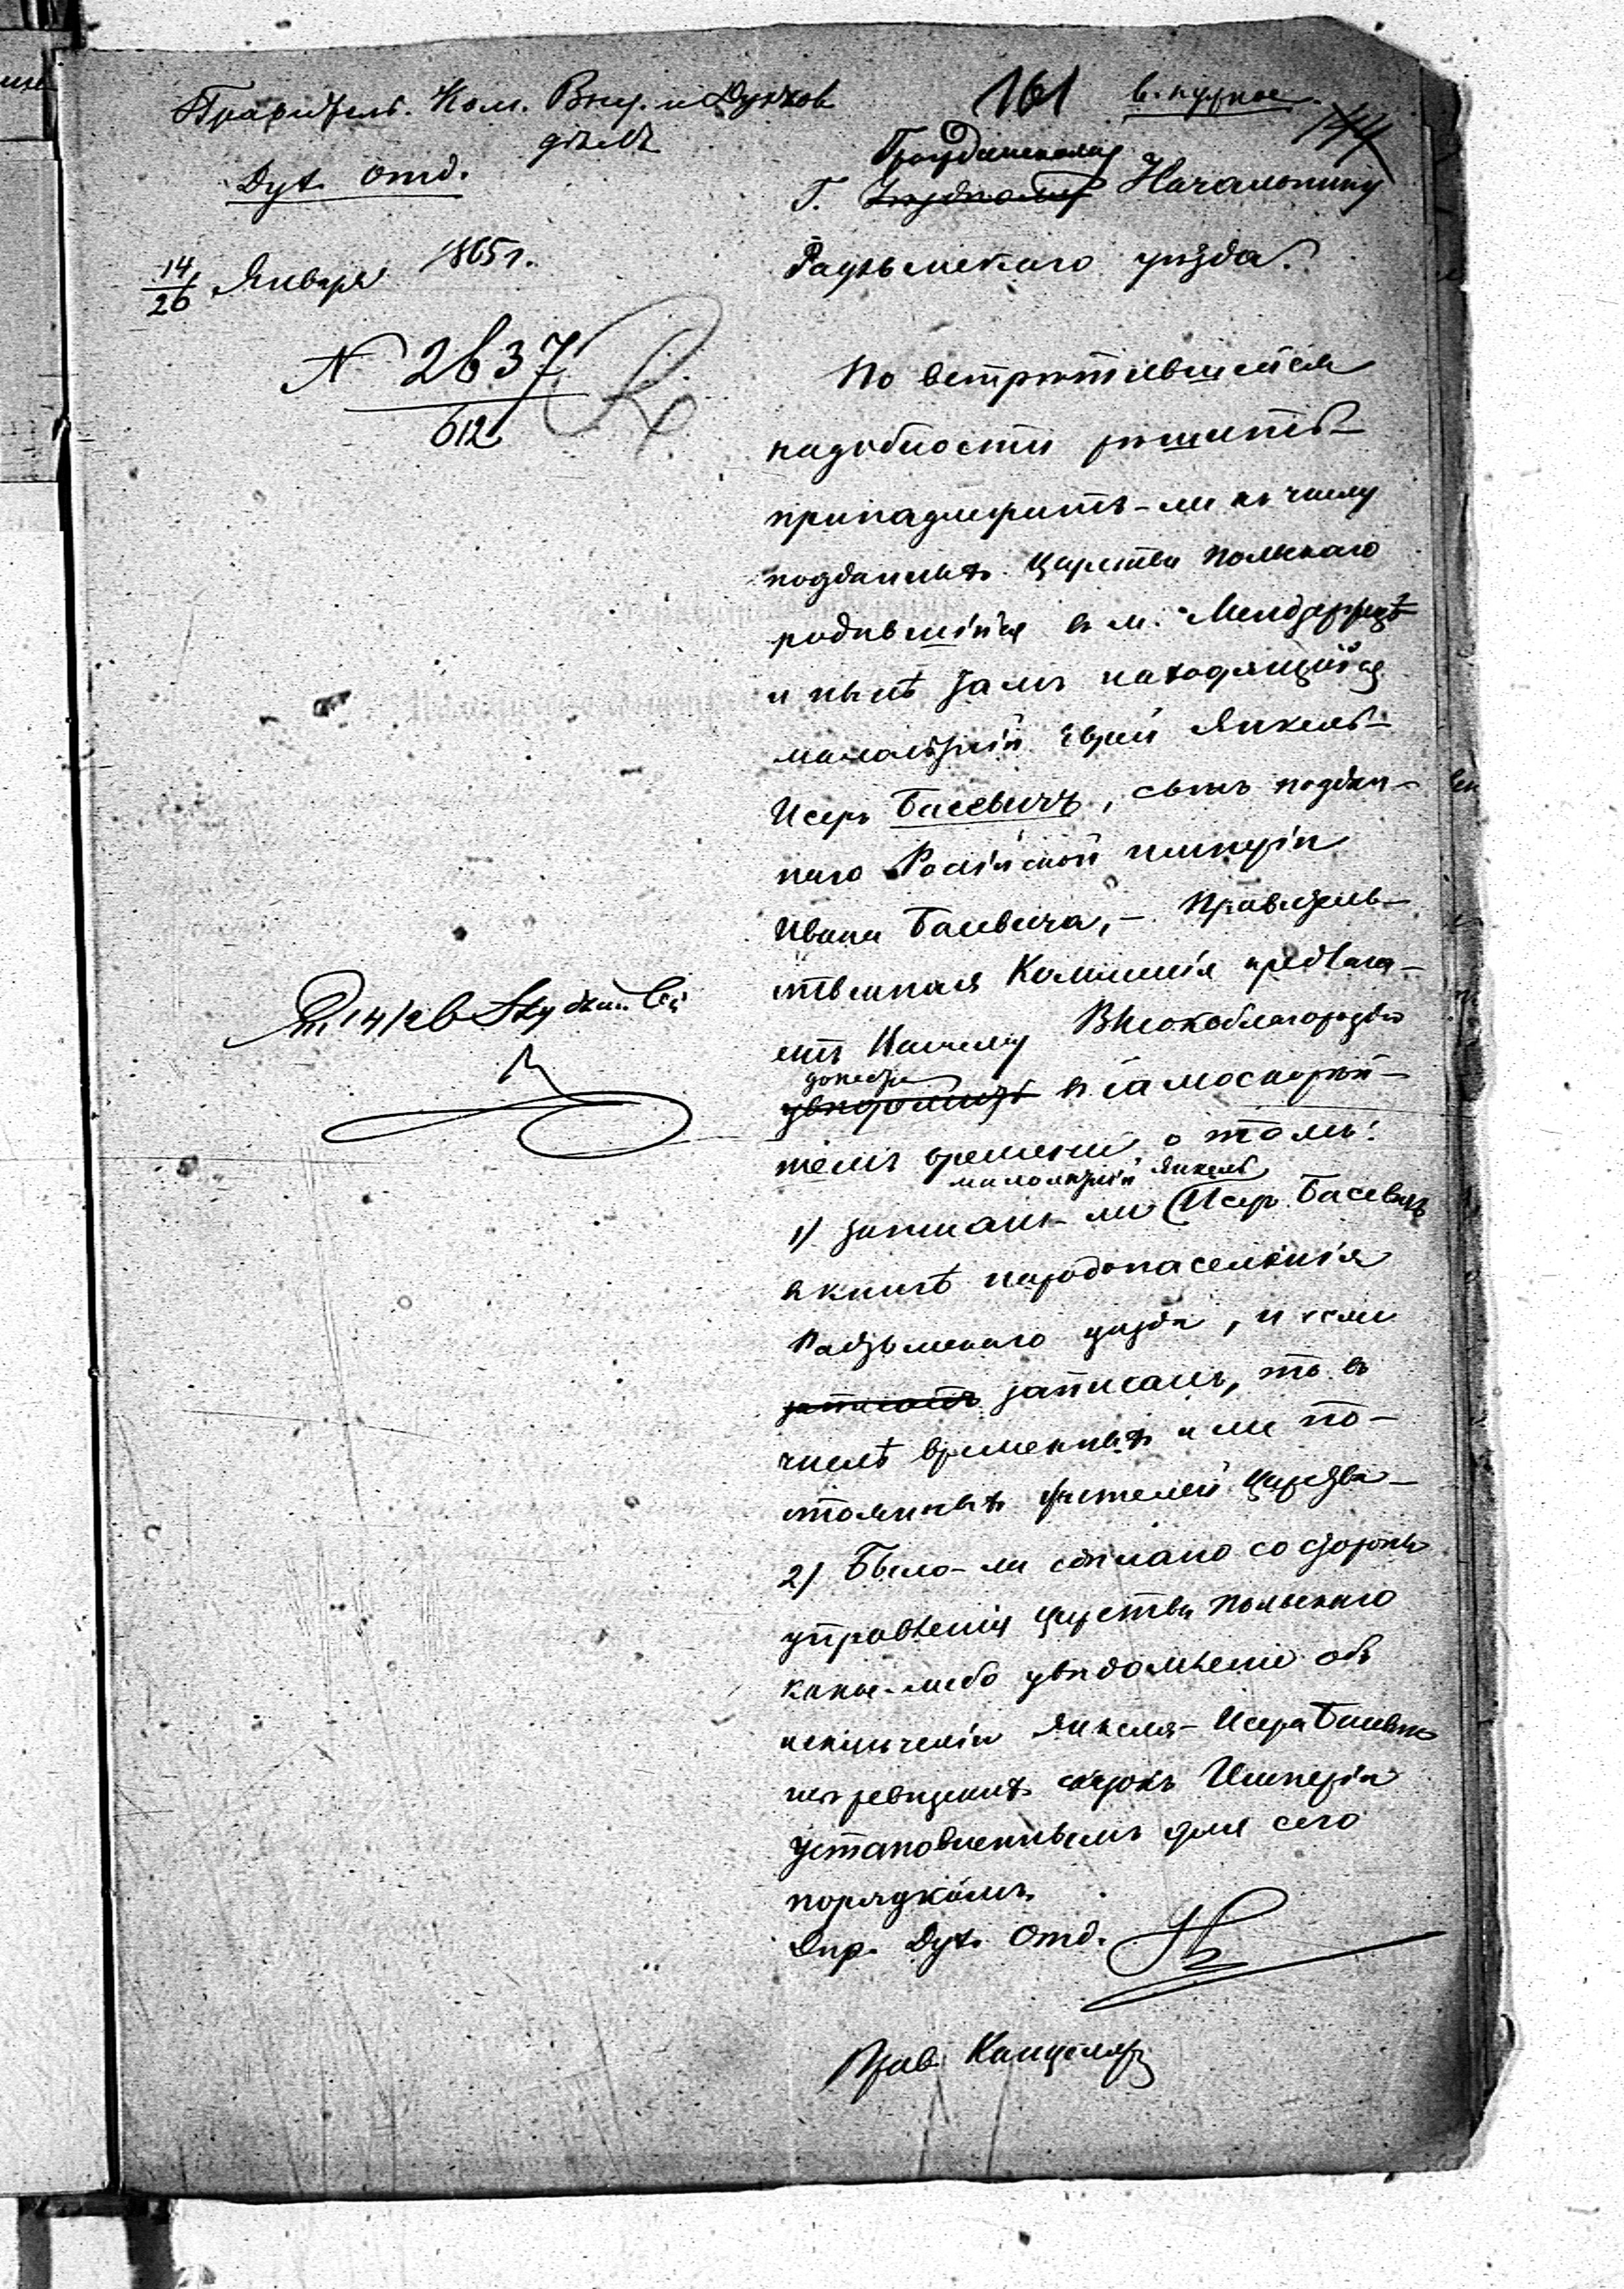 Правительс. Ком. Вну. и Духов
дѣлъ
Дух. Отд.
14/26 Января 1865 г.
N 2637
612
161 в. нужное.
144
Гражданскому
Г. Начальнику
Радзыминскаго уѣзда.
По встрѣтившейся
надобности рѣшить
принадлежитъ-ли къ числу
подданныхъ Царства Польскаго
родившійся въ м.
и нынѣ тамъ находящійся
малолѣтній Еврей Янкель-
Исеръ Басевичъ, сынъ поддан-
наго Россійской имперіи
Ивана Басевича, – Правитель-
ственная Коммисія предлага-
етъ Вашему Высокоблагородію
донести
увѣдомить въ самоскорѣй-
шемъ времени о томъ:
малолѣтній Янкель
1) записанъ-ли Исеръ Басевичъ
въ книгѣ народонаселенія
Радзыминскаго уѣзда, и если
записанъ, то въ
числѣ временныхъ или по-
стоянныхъ жителей Царства
2) Было-ли сдѣлано со стороны
управленія Царства Польскаго
какое-либо увѣдомленіе объ
исключеніи Янкеля-Исера Басевича
изъ ревизскихъ сказокъ Имперіи
установленнымъ для сего
порядкомъ.
Дир. Дух. Отд.
Прав. Канцеляр